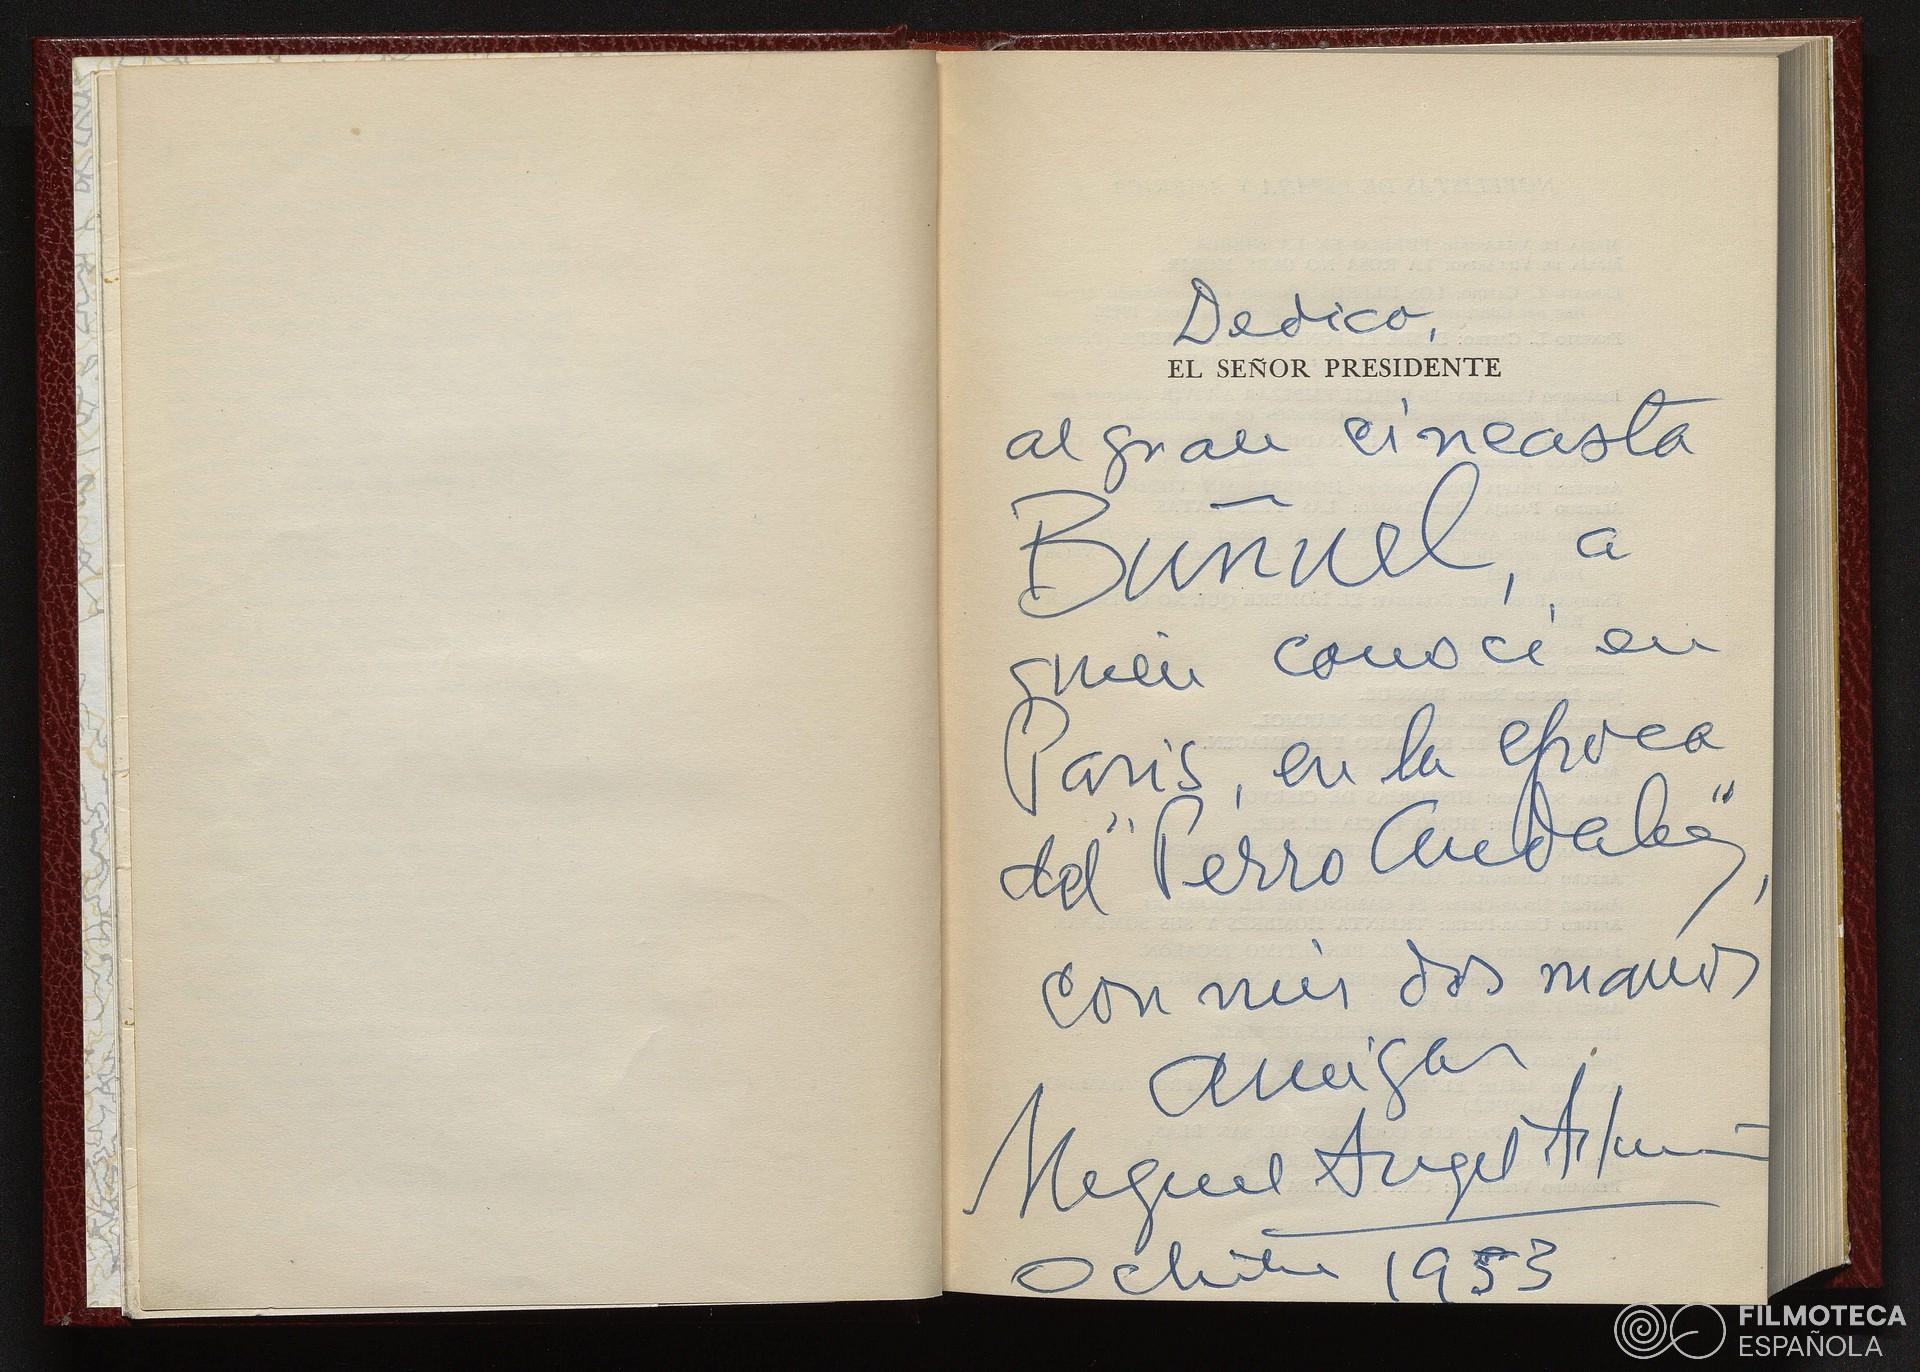 Dedico,
EL SEÑOR PRESIDENTE
al gran cineasta
Buñuel, a
quien conocí en
Paris, en la epoca
del "Perro Andaluz",
con mis dos manos
amigas
Miguel Angel Asturias
Octubre 1953
FILMOTECA
ESPAÑOLA